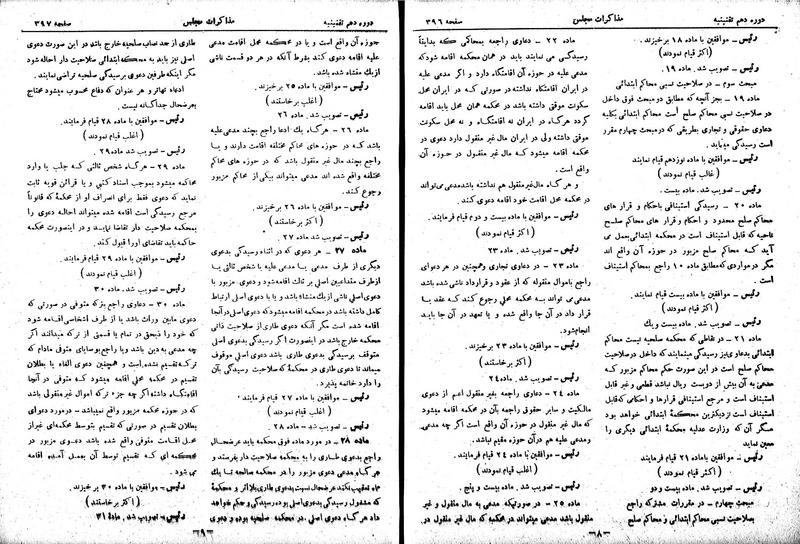 دوره دهم تقنینیه
مذاکرات مجلس
صفحه ۳۹۶
رئیس ـ موافقین با ماده ۱۸ برخیزند.
(اکثر قیام نمودند)
رئیس ـ تصویب شد. ماده ۱۹.
مبحث سوم ـ در صلاحیت نسبی محاکم ابتدائی
ماده ۱۹ ـ بجز آنچه که مطابق دو مبحث فوق داخل
در صلاحیت نسبی محاکم صلح است محاکم ابتدائی بکلیه
دعاوی حقوقی و تجارتی بطریقی که در مبحث چهارم مقرر
است رسیدگی مینماید.
رئیس ـ موافقین با ماده نوزدهم قیام نمایند
(غالب قیام نمودند)
رئیس ـ تصویب شد. ماده بیست.
ماده ۲۰ ـ رسیدگی استینافی باحکام و قرار های
محاکم صلح محدود و احکام و قرار های محاکم صلح
ناحیه که قابل استیناف است در محکمه ابتدائی بعمل می
آید که محاکم صلح مزبور در حوزه آن واقع اند
مگر در مواردی که مطابق ماده ۱۰ راجع بمحاکم استیناف
است.
رئیس ـ موافقین با ماده بیست قیام نمایند.
(اکثر قیام نمودند)
رئیس ـ تصویب شد. ماده بیست و یک.
ماده ۲۱ ـ در نقاطی که محکمه صلحیه نیست محاکم
ابتدائی بدعاوی نیز رسیدگی مینمایند که داخل در صلاحیت
محاکم صلح است در این صورت حکم محاکم مزبور که
مدعی به آن بیش از دویست ریال نباشد قطعی و غیر قابل
استیناف است و مرجع استینافی قرارها و احکامی که قابل
استیناف است نزدیکترین محکمه ابتدائی خواهد بود
مگر آن که وزارت عدلیه محکمه ابتدائی دیگری را
معین نماید
رئیس ـ موافقین با ماده ۲۱ قیام فرمایند
(اکثر قیام نمودند)
رئیس ـ تصویب شد. ماده بیست و دو
مبحث چهارم ـ در مقررات مشترکه راجع
بصلاحیت نسبی محاکم ابتدائی و محاکم صلح
ماده ۲۲ ـ دعاوی راجعه بمحاکمی که بدایتاً
رسیدگی می نمایند باید در همان محکمه اقامه شود که
مدعی علیه در حوزه آن اقامتگاه دارد و اگر مدعی علیه
در ایران اقامتگاه نداشته در صورتی که در ایران محل
سکونت موقتی داشته باشد در محکمه همان محل باید اقامه
گردد هرگاه در ایران نه اقامتگاه و نه محل سکونت
موقتی داشته ولی در ایران مال غیر منقول دارد دعوی در
محکمه اقامه میشود که مال غیر منقول در حوزه آن
واقع است.
و هر گاه مال غیر منقول هم نداشته باشد مدعی می تواند
در محکمه محل اقامت خود اقامه دعوی کند.
رئیس ـ موافقین با ماده بیست و دوم قیام فرمایند.
(اکثر قیام نمودند)
رئیس ـ تصویب شد. ماده ۲۳
ماده ۲۳ ـ در دعاوی تجارتی و همچنین در هر دعوای
راجع باموال منقوله که از عقود و قرارداد ناشی شده باشد
مدعی می تواند به محکمه محلی رجوع کند که عقد یا
قرار داد در آن جا واقع شده و یا تعهد در آن جا باید
انجام شود.
رئیس ـ موافقین با ماده ۲۳ برخیزند.
(اکثر قیام نمودند)
رئیس ـ تصویب شد. ماده ۲۴
ماده ۲۴ ـ دعاوی راجعه بغیر منقول اعم از دعوی
مالکیت و سایر حقوق راجعه بآن در محکمه اقامه میشود
که مال غیر منقول در حوزه آن واقع است اگر چه مدعی
و مدعی علیه هم در آن حوزه مقیم نباشند.
رئیس ـ موافقین با ماده ۲۴ قیام فرمایند.
(اکثر قیام نمودند)
رئیس ـ تصویب شد. ماده بیست و پنج.
ماده ۲۵ ـ در صورتیکه مدعی به مال منقول و غیر
منقول باشد مدعی میتواند در محکمه که مال غیر منقول در
ـ۶۸ـ
دوره دهم تقنینیه
مذاکرات مجلس
صفحه ۳۹۷
حوزه آن واقع است و یا در محکمه محل اقامت مدعی
علیه اقامه دعوی کند بشرط آنکه در هر دو قسمت ناشی
از یک منشاء شده باشد.
رئیس ـ موافقین با ماده ۲۵ برخیزند.
(اغلب برخاستند)
رئیس ـ تصویب شد. ماده ۲۶
ماده ۲۶ ـ هرگاه یک ادعا راجع بچند مدعی علیه
باشد که در حوزه های محاکم مختلفه اقامت دارند و یا
راجع بچند مال غیر منقول باشد که در حوزه های محاکم
مختلفه واقع شده اند مدعی میتواند بیکی از محاکم مزبور
رجوع کند.
رئیس ـ موافقین با ماده ۲۶ برخیزند.
(اکثر برخاستند)
رئیس ـ تصویب شد. ماده ۲۷.
ماده ۲۷ ـ هر دعوی که در اثناء رسیدگی بدعوی
دیگری از طرف مدعی یا مدعی علیه یا شخص ثالثی یا
از طرف متداعیین اصلی بر ثالث اقامه شود و دعوی مزبور با
دعوی اصلی ناشی از یک منشاء باشد و یا با دعوی اصلی ارتباط
کامل داشته باشد در محکمه اقامه میشود که دعوی اصلی در آنجا
اقامه شده است مگر آنکه دعوی طاری از صلاحیت ذاتی
محکمه خارج باشد در اینصورت اگر رسیدگی بدعوی اصلی
متوقف برسیدگی بدعوی طاری باشد دعوی اصلی موقوف
میماند تا دعوی طاری در محکمه صلاحیت رسیدگی بآن
را دارد خاتمه پذیرد.
رئیس ـ موافقین با ماده ۲۷ قیام فرمایند.
(اکثر برخاستند)
رئیس ـ تصویب شد ـ ماده ۲۸.
ماده ۲۸ ـ در مورد ماده فوق محکمه باید عرضحال
راجع بدعوی طاری را به محکمه صلاحیت دار بفرستد و
هر گاه مدعی دعوی مزبور را در محکمه صالحه تا یک
ماه تعقیب نکند عرضحال نسبت بدعوی طاری بلا اثر و محکمه
که مشغول رسیدگی بدعوی اصلی بوده رسیدگی و حکم خواهد
داد هر گاه دعوی اصلی در محکمه صلحیه بوده و دعوی
طاری از حد نصاب صلحیه خارج باشد در این صورت دعوی
اصلی نیز باید به محکمه ابتدائی صلاحیت دار احاله شود
مگر اینکه طرفین دعوی برسیدگی صلحیه تراضی نمایند.
ادعاء تهاتر و هر عنوان که دفاع محسوب میشود محتاج
بعرضحال جداگانه نیست.
رئیس ـ موافقین با ماده ۲۸ قیام فرمایند.
(اغلب قیام نمودند)
رئیس ـ تصویب شد. ماده ۲۹.
ماده ۲۹ ـ هر گاه شخص ثالثی که جلب یا وارد
محاکمه میشود بموجب اسناد کتبی و یا قرائن قویه ثابت
نماید که دعوی فقط برای انصراف او از محکمه که قانوناً
مرجع رسیدگی است اقامه شده میتواند احاله دعوی را
بمحکمه صلاحیت دار تقاضا نماید و در اینصورت محکمه
حاکمه باید تقاضای او را قبول کند.
رئیس ـ موافقین با ماده ۲۹ قیام فرمایند.
(اغلب قیام نمودند)
رئیس ـ تصویب شد. ماده ۳۰
ماده ۳۰ ـ دعوی راجع بترکه متوفی در صورتی که
دعوی مابین وراث باشد یا از طرف اشخاصی اقامه شود
که خود را ذیحق در تمام یا قسمتی از ترکه میدانند اگر
چه مدعی به دین باشد و یا راجع بوصایای متوفی مادام که
ترکه تقسیم نشده است و همچنین دعوی الغاء یا بطلان
تقسیم در محکمه محلی اقامه میشود که متوفی در آنجا
اقامتگاه داشته اگر چه جزء ترکه اموال غیر منقولی باشد
که در حوزه محکمه مزبور واقع نمیباشد ـ در مورد دعوای
بطلان تقسیم در صورتی که تقسیم بتوسط محکمه غیر از
محل اقامت متوفی واقع شده باشد دعوی مزبور در
محکمه که تقسیم توسط آن بعمل آمده اقامه
می شود.
رئیس ـ موافقین با ماده ۳۰ برخیزند.
(اکثر برخاستند)
رئیس ـ تصویب شد. ماده ۳۱
ـ۶۹ـ